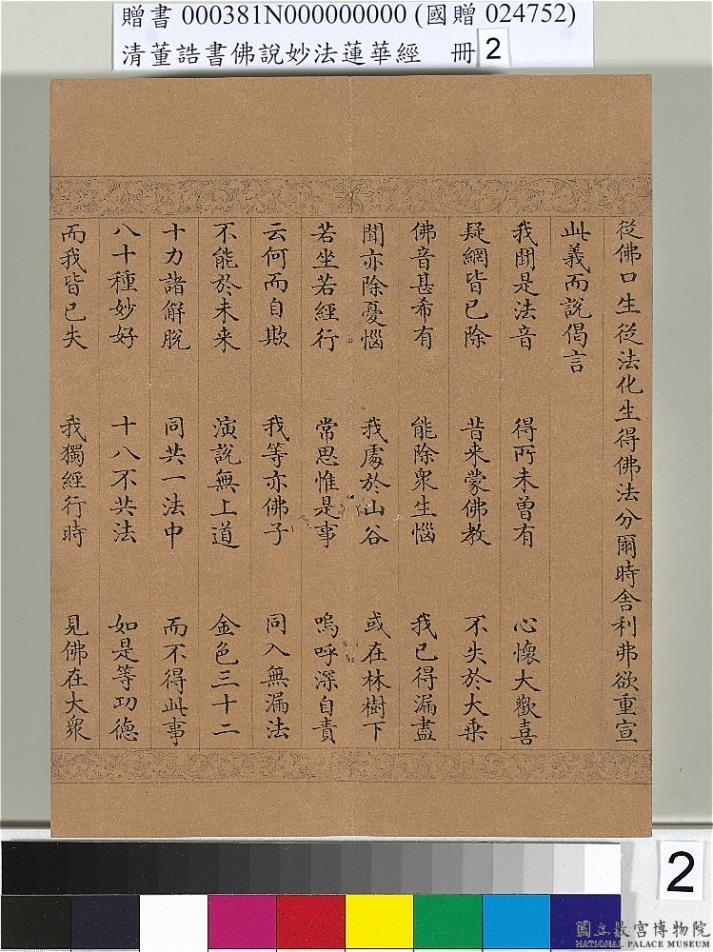 贈書 000381N000000000 (國贈 024752)
清董誥書佛說妙法蓮華經 冊 2
從佛口生從法化生得佛法分爾時舍利弗欲重宣
此義而說偈言
我聞是法音 得所未曾有 心懷大歡喜
疑網皆已除 昔来蒙佛教 不失於大乗
佛音甚希有 能除衆生惱 我已得漏盡
聞亦除憂惱 我處於山谷 或在林樹下
若坐若經行 常思惟是事 嗚呼深自責
云何而自欺 我等亦佛子 同入無漏法
不能於未来 演說無上道 金色三十二
十力諸解脫 同共一法中 而不得此事
八十種妙好 十八不共法 如是等功德
而我皆已失 我獨經行時 見佛在大衆
2
國立故宮博物院
NATIONAL PALACE MUSEUM